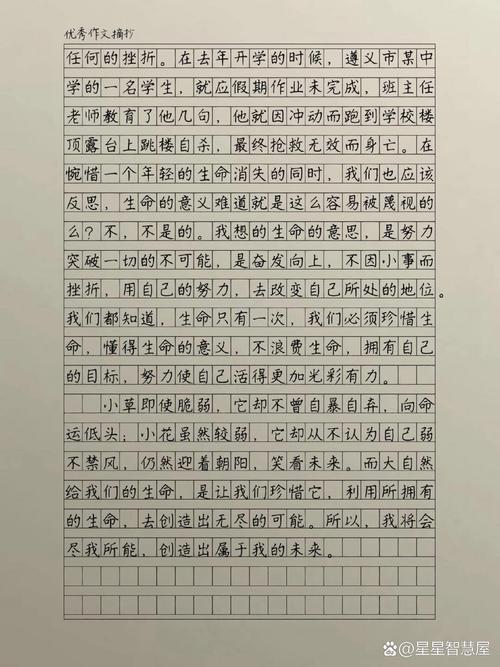 优秀作文摘抄
任何的挫折。在去年开学的时候，遵义市某中
学的一名学生，就应假期作业未完成，班主任
老师教育了他几句，他就因冲动而跑到学校楼
顶露台上跳楼自杀，最终抢救无效而身亡。在
惋惜一个年轻的生命消失的同时，我们也应该
反思，生命的意义难道就是这么容易被蔑视的
么？不，不是的。我想的生命的意思，是努力
突破一切的不可能，是奋发向上，不因小事而
挫折，用自己的努力，去改变自己所处的地位。
我们都知道，生命只有一次，我们必须珍惜生
命，懂得生命的意义，不浪费生命，拥有自己
的目标，努力使自己活得更加光彩有力。
小草即使脆弱，它却不曾自暴自弃，向命
运低头；小花虽然较弱，它却从不认为自己弱
不禁风，仍然迎着朝阳，笑看未来。而大自然
给我们的生命，是让我们珍惜它，利用所拥有
的生命，去创造出无尽的可能。所以，我将会
尽我所能，创造出属于我的未来。
星星智慧屋